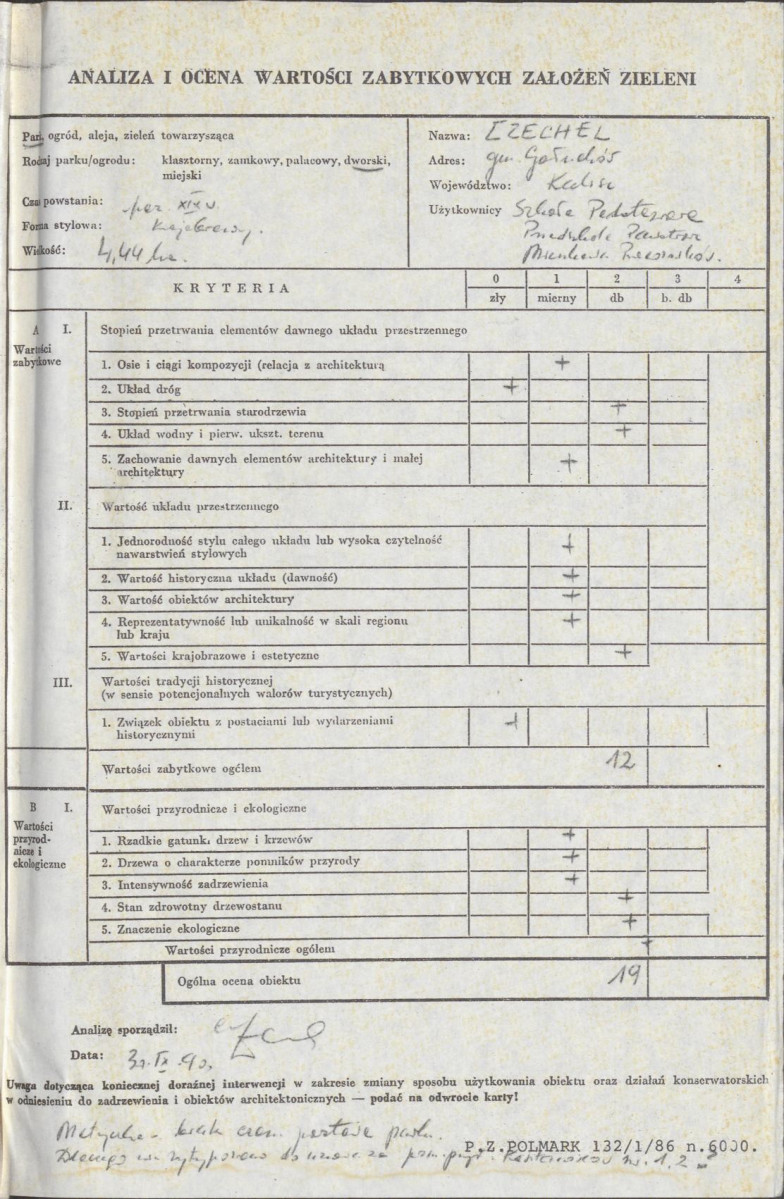 ANALIZA I OCENA WARTOŚCI ZABYTKOWYCH ZAŁOŻEŃ ZIELENI
Park, ogród, aleja, zieleń towarzysząca
Rodzaj parku/ogrodu: klasztorny, zamkowy, pałacowy, dworski,
miejski
Czas powstania: XIX w.
Forma stylowa: krajobrazowy.
Wielkość: 4,44 ha.
Nazwa: CZECHEL
Adres: gm. Gołuchów
Województwo: Kalisz
Użytkownicy Szkoła Podstawowa
KRYTERIA
0 1 2 3 4
zły mierny db b. db
A I. Stopień przetrwania elementów dawnego układu przestrzennego
Wartości
zabytkowe
1. Osie i ciągi kompozycji (relacja z architekturą +
2. Układ dróg +
3. Stopień przetrwania starodrzewia +
4. Układ wodny i pierw. ukszt. terenu +
5. Zachowanie dawnych elementów architektury i małej
architektury +
II. Wartość układu przestrzennego
1. Jednorodność stylu całego układu lub wysoka czytelność
nawarstwień stylowych +
2. Wartość historyczna układu (dawność) +
3. Wartość obiektów architektury +
4. Reprezentatywność lub unikalność w skali regionu
lub kraju +
5. Wartości krajobrazowe i estetyczne +
III. Wartości tradycji historycznej
(w sensie potencjonalnych walorów turystycznych)
1. Związek obiektu z postaciami lub wydarzeniami
historycznymi +
Wartości zabytkowe ogółem 12
B I. Wartości przyrodnicze i ekologiczne
Wartości
przyrod-
nicze i
ekologiczne
1. Rzadkie gatunki drzew i krzewów +
2. Drzewa o charakterze pomników przyrody +
3. Intensywność zadrzewienia +
4. Stan zdrowotny drzewostanu +
5. Znaczenie ekologiczne +
Wartości przyrodnicze ogółem
Ogólna ocena obiektu 19
Analizę sporządził:
Data:
Uwaga dotycząca koniecznej doraźnej interwencji w zakresie zmiany sposobu użytkowania obiektu oraz działań konserwatorskich
w odniesieniu do zadrzewienia i obiektów architektonicznych — podać na odwrocie karty!
P.Z.POLMARK 132/1/86 n.6000.